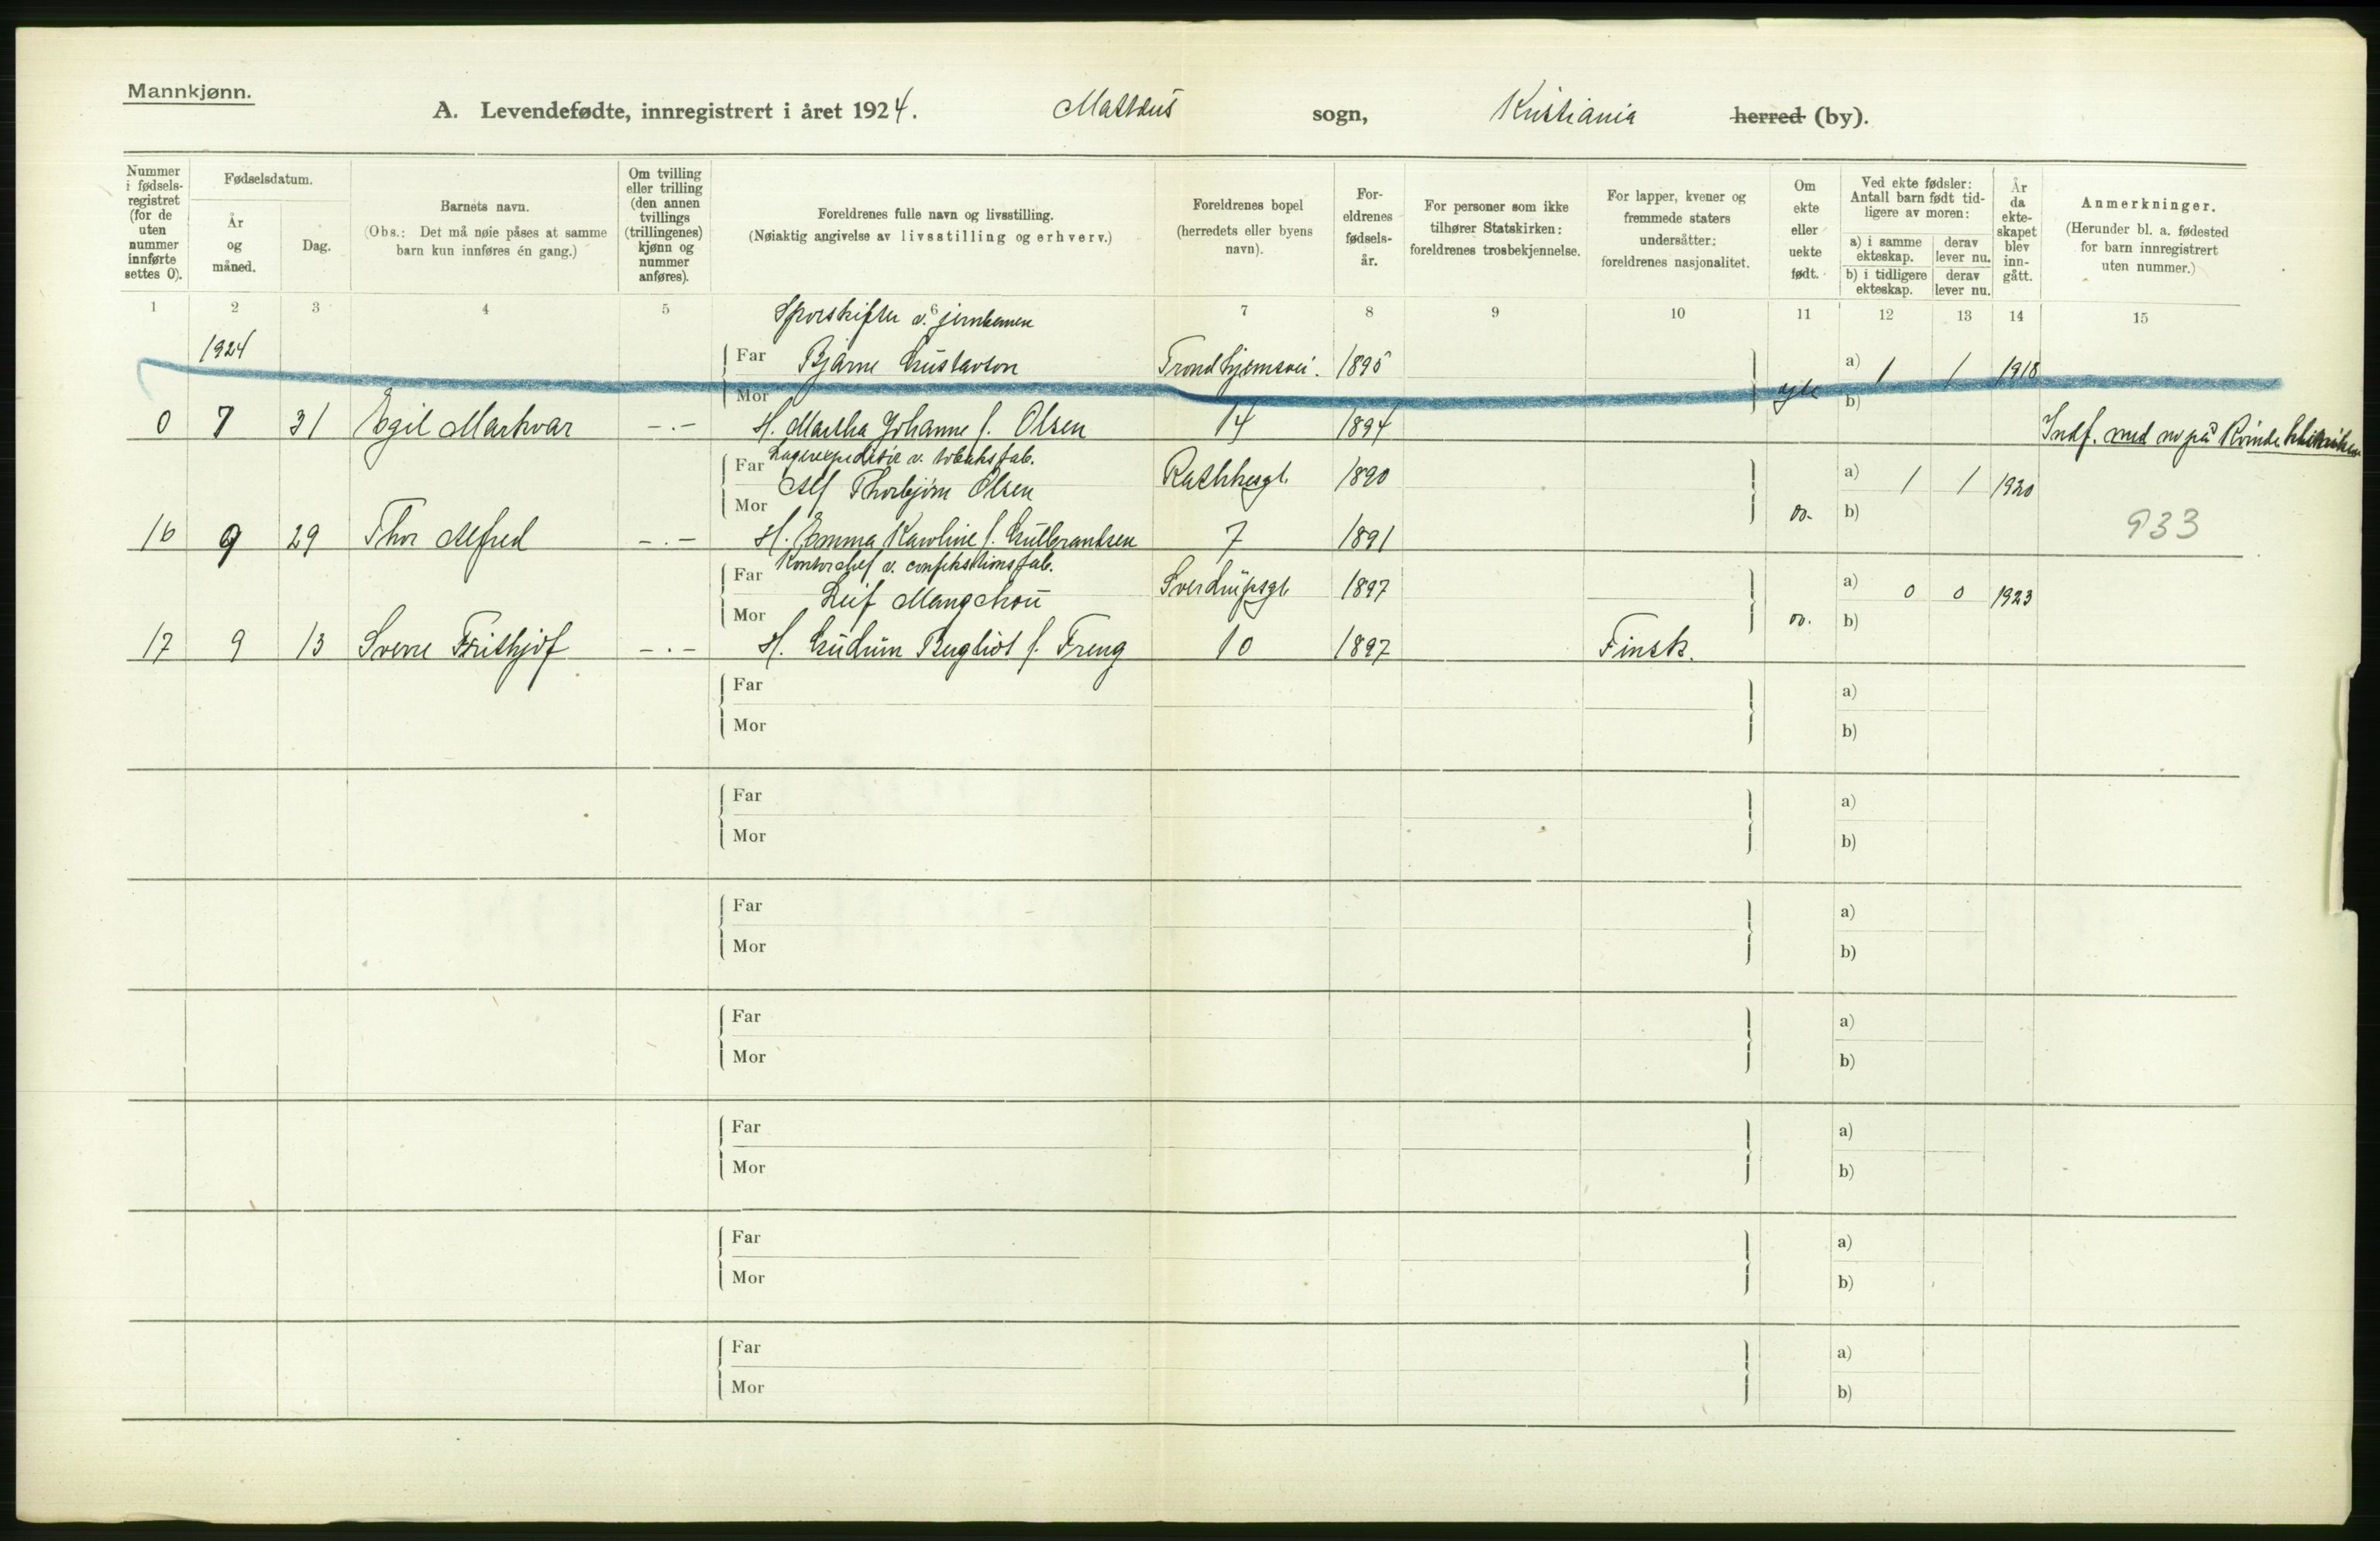 Mannkjønn.
A. Levendefødte, innregistrert i året 1924. Matteus sogn, Kristiania herred (by).
Nummer i fødsels-registret (for de uten nummer innførte settes 0).
Fødselsdatum.
År og måned.
Dag.
Barnets navn.
(Obs.: Det må nøie påses at samme barn kun innføres én gang.)
Om tvilling eller trilling (den annen tvillings (trillingenes) kjønn og nummer anføres).
Foreldrenes fulle navn og livsstilling.
(Nøiaktig angivelse av livsstilling og erhverv.)
Foreldrenes bopel (herredets eller byens navn).
For-eldrenes fødsels-år.
For personer som ikke tilhører Statskirken: foreldrenes trosbekjennelse.
For lapper, kvener og fremmede staters undersåtter: foreldrenes nasjonalitet.
Om ekte eller uekte født.
Ved ekte fødsler: Antall barn født tid-ligere av moren:
a) i samme ekteskap. derav lever nu.
b) i tidligere ekteskap. derav lever nu.
År da ekte-skapet blev inn-gått.
Anmerkninger.
(Herunder bl. a. fødested for barn innregistrert uten nummer.)
1 2 3 4 5 6 7 8 9 10 11 12 13 14 15
Sporskifter v. jernbanen
1924 Far Bjarne Gustavson Trondhjemsvei. 1895 a) 1 1 1918
Mor egte b)
0 7 31 Egil Markvar -.- H. Martha Johanne f. Olsen 14 1894 Indf. med no på Kvindeklinikken
Lagerexpeditør v. tobaksfab.
Far Alf Thorbjørn Olsen Rathkesgt. 1890 a) 1 1 1920
Mor do. b)
16 9 29 Thor Alfred -.- H. Emma Karoline f. Gulbrandsen 7 1891 933
Kontorchef v. confektionsfab.
Far Leif Mangchou Sverdrupsgt. 1897 a) 0 0 1923
Mor do. b)
17 9 13 Sverre Frithjof -.- H. Gudrun Bergliot f. Freng 10 1897 Finsk.
Far a)
Mor b)
Far a)
Mor b)
Far a)
Mor b)
Far a)
Mor b)
Far a)
Mor b)
Far a)
Mor b)
Far a)
Mor b)